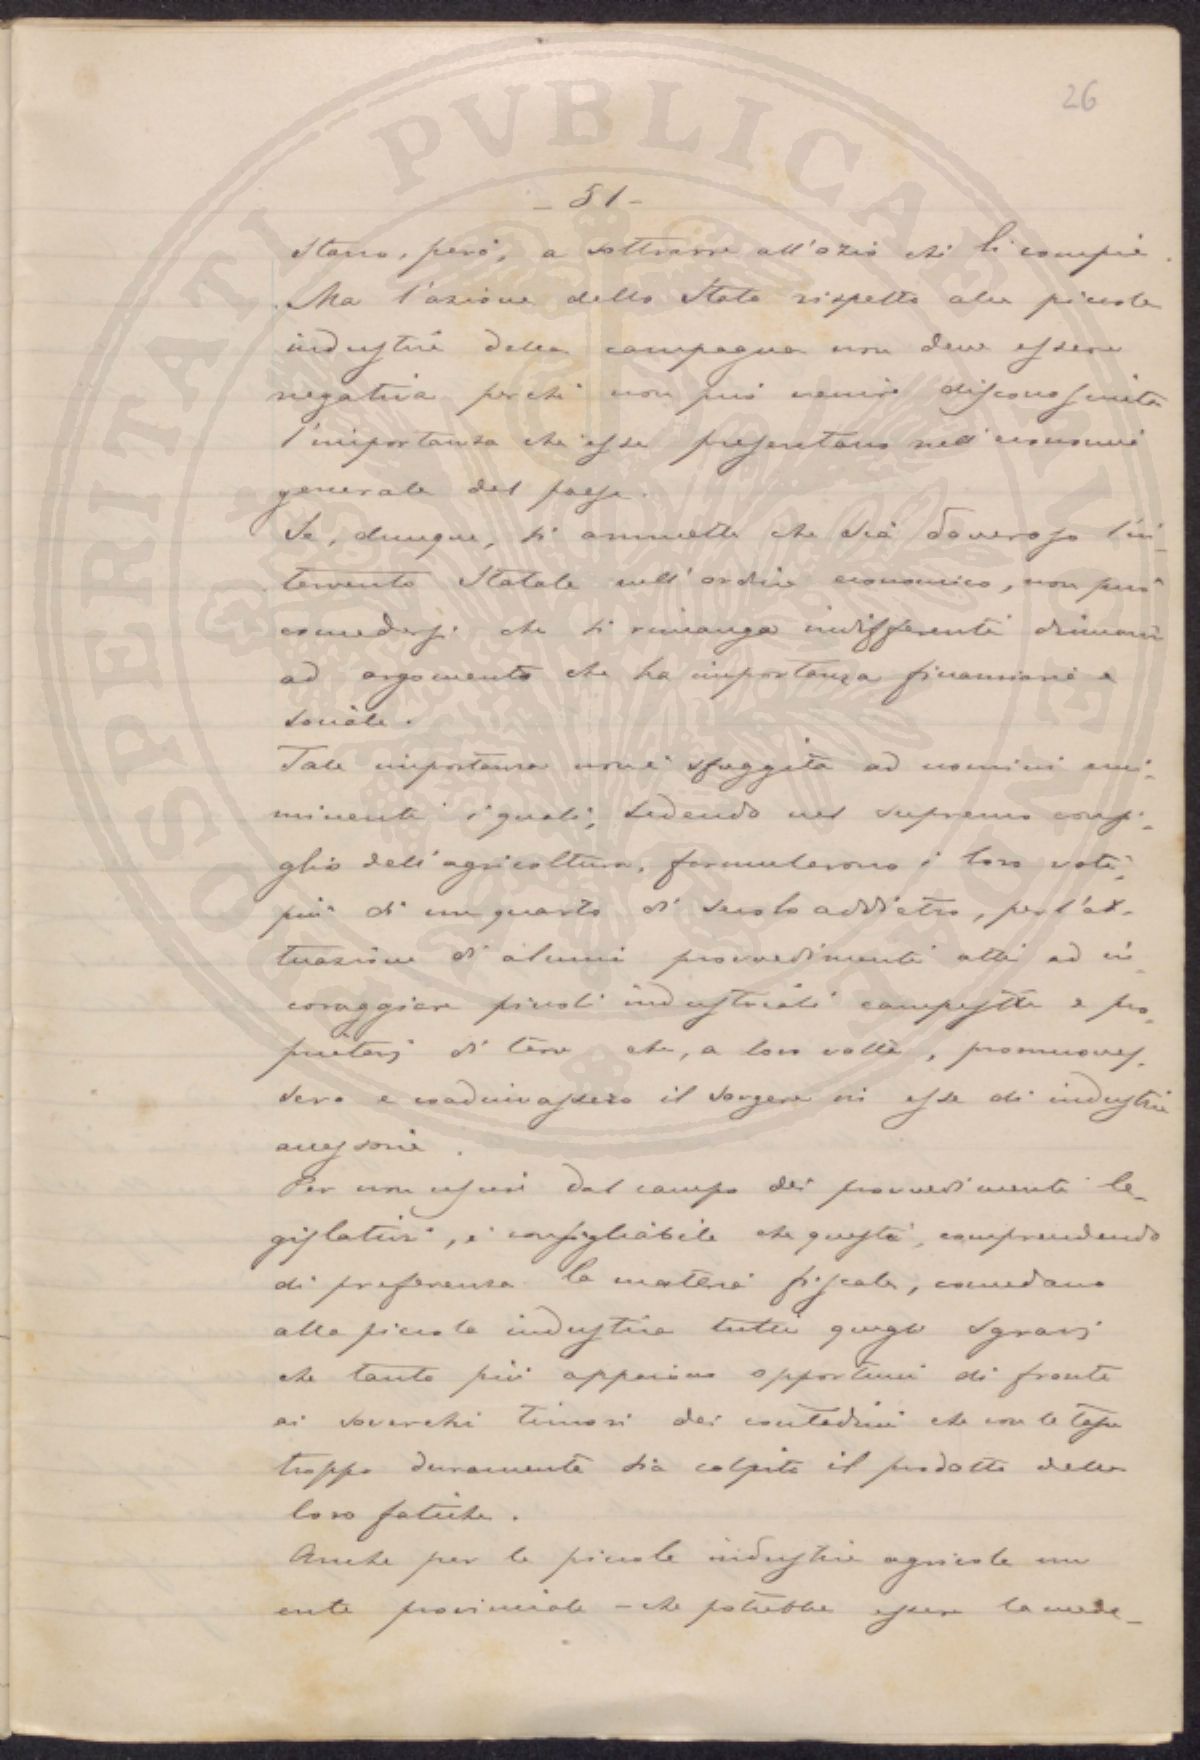 26
- 51 -
stano, però, a sottrarre all'ozio chi li compie.
Ma l'azione dello Stato rispetto alle piccole
industrie della campagna non deve essere
negativa perché non può venire disconosciuta
l'importanza che esse presentano nell'economia
generale del paese.
Se, dunque, si ammette che sia doveroso l'in-
tervento Statale nell'ordine economico, non può
concedersi che si rimanga indifferenti dinanzi
ad argomento che ha importanza finanziaria e
sociale.
Tale importanza non è sfuggita ad uomini emi-
minenti i quali, sedendo nel supremo consi-
glio dell'agricoltura, formularono i loro voti,
più di un quarto di secolo addietro, per l'at-
tuazione di alcuni provvedimenti atti ad in-
coraggiare piccoli industriali campestri e pro-
prietari di terre che, a loro volta, promuoves-
sero e coadiuvassero il sorgere in esse di industrie
accessorie.
Per non uscire dal campo dei provvedimenti le-
gislativi, è consigliabile che questi, comprendendo
di preferenza la materia fiscale, concedano
alla piccola industria tutti quegli sgravi
che tanto più appaiono opportuni di fronte
ai soverchi timori dei contadini che con le tasse
troppo duramente sia colpito il prodotto delle
loro fatiche.
Anche per le piccole industrie agricole un
ente provinciale - che potrebbe essere la mede-
PROSPERITATI PVBLICAE